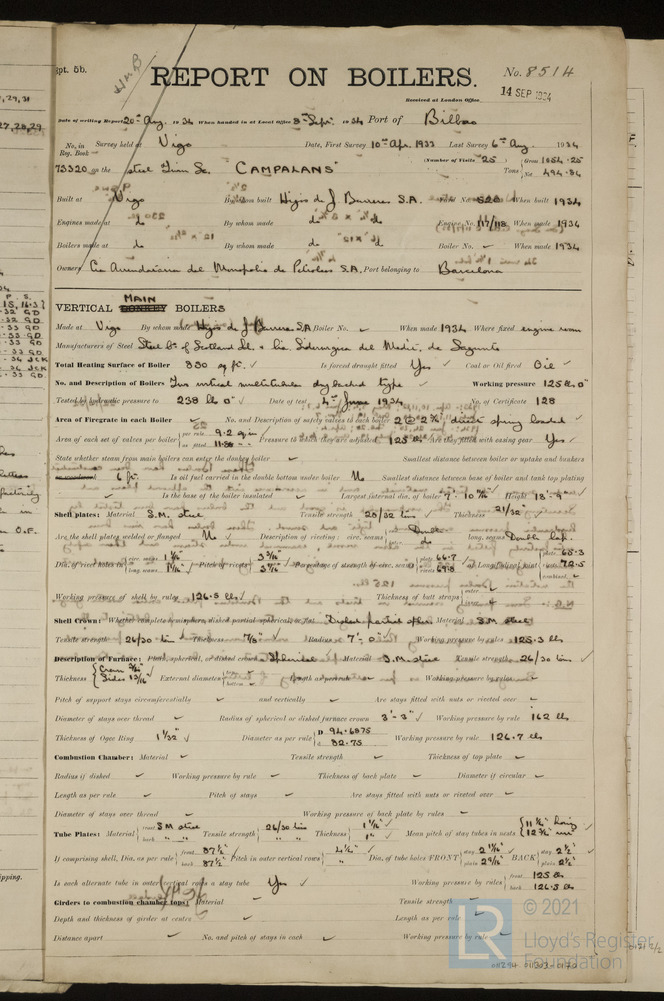 Rpt. 5b.
REPORT ON BOILERS.
No. 8514
Received at London Office
14 SEP 1934
Date of writing Report 20th Aug. 1934 When handed in at Local Office 8th Sept. 1934 Port of Bilbao
No. in Reg. Book Survey held at Vigo Date, First Survey 10th Apr. 1933 Last Survey 6th Aug. 1934
(Number of Visits 25)
73320 on the steel "CAMPALANS" Tons Gross 1054.25 Net 494.84
Built at Vigo By whom built Hijos de J. Barreras S.A. Yard No. 520 When built 1934
Engines made at do By whom made do Engine No. 117/118 When made 1934
Boilers made at do By whom made do Boiler No. ✓ When made 1934
Owners Cia Arrendataria del Monopolio de Petroleos S.A. Port belonging to Barcelona
VERTICAL MAIN DONKEY BOILERS
Made at Vigo By whom made Hijos de J. Barreras S.A. Boiler No. ✓ When made 1934 Where fixed engine room
Manufacturers of Steel Steel Co. of Scotland Ld. & Cia Siderurgica del Medit. de Sagunto
Total Heating Surface of Boiler 830 sq. ft. ✓ Is forced draught fitted Yes ✓ Coal or Oil fired Oil ✓
No. and Description of Boilers Two vertical multitubular dry backed type ✓ Working pressure 125 lbs 0"
Tested by hydraulic pressure to 238 lbs 0" ✓ Date of test 4th June 1934 No. of Certificate 128
Area of Firegrate in each Boiler ✓ No. and Description of safety valves to each boiler direct spring loaded ✓
Area of each set of valves per boiler per rule 9.2 as fitted Pressure to which they are adjusted 125 lbs Are they fitted with easing gear Yes ✓
State whether steam from main boilers can enter the donkey boiler ✓ Smallest distance between boiler or uptake and bunkers
or woodwork 6 ft. Is oil fuel carried in the double bottom under boiler No Smallest distance between boiler and tank top plating
✓ Is the base of the boiler insulated ✓ Largest internal dia. of boiler 7'-10 Height
Shell plates: Material S.M. steel Tensile strength 28/32 ton Thickness 21/32"
Are the shell plates welded or flanged No ✓ Description of riveting: circ. seams Double long. seams Double lap.
Dia. of rivet holes in circ. seams long. seams Pitch of rivets Percentage of strength of circ. seams plate 66.7 rivets 69.8 of Longitudinal joint plate 68.3 rivets 72.5 combined ✓
Working pressure of shell by rules 126.5 lbs ✓ Thickness of butt straps outer inner
Shell Crown: Whether complete hemisphere, dished partial spherical, or flat Dished partial spher. Material S.M. steel
Tensile strength 26/30 ton Thickness 7/8" ✓ Radius 7'-0" ✓ Working pressure by rules 125.3 lbs
Description of Furnace: Plain, spherical, or dished crown Spherical Material S.M. steel Tensile strength 26/30 ton ✓
Thickness Crown Sides 13/16" External diameter top bottom Length as per rule ✓ Working pressure by rules ✓
Pitch of support stays circumferentially ✓ and vertically ✓ Are stays fitted with nuts or riveted over ✓
Diameter of stays over thread ✓ Radius of spherical or dished furnace crown 3'-3" ✓ Working pressure by rule 162 lbs
Thickness of Ogee Ring 1 1/32" ✓ Diameter as per rule D 94.6875 d 82.75 Working pressure by rule 126.7 lbs
Combustion Chamber: Material ✓ Tensile strength ✓ Thickness of top plate ✓
Radius if dished ✓ Working pressure by rule ✓ Thickness of back plate ✓ Diameter if circular ✓
Length as per rule ✓ Pitch of stays ✓ Are stays fitted with nuts or riveted over ✓
Diameter of stays over thread ✓ Working pressure of back plate by rules ✓
Tube Plates: Material front S.M. steel back " " Tensile strength 26/30 ton Thickness Mean pitch of stay tubes in nests
If comprising shell, Dia. as per rule front 87½" back 87½" Pitch in outer vertical rows Dia. of tube holes FRONT stay plain BACK stay 2½" plain 2½"
Is each alternate tube in outer vertical rows a stay tube Yes ✓ Working pressure by rules front 125 lbs back 126.5 lbs
Girders to combustion chamber tops: Material Tensile strength ✓
Depth and thickness of girder at centre ✓ Length as per rule ✓
Distance apart ✓ No. and pitch of stays in each ✓ Working pressure by rule ✓
LR
© 2021
Lloyd's Register
Foundation
011294-011303-0170